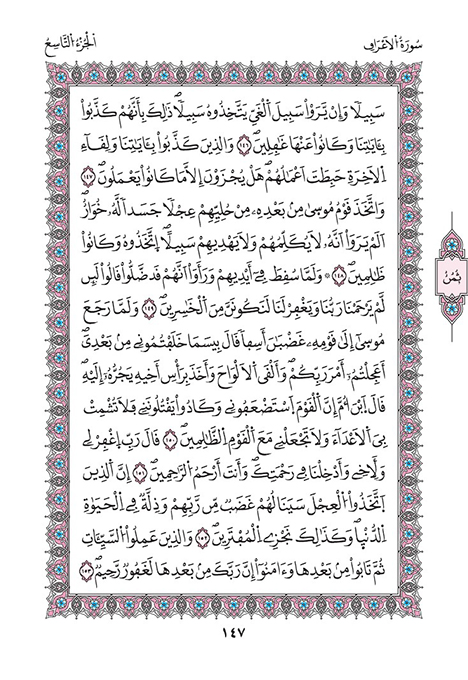 سُورَةُ الاَعْرَافِ
الْجُزْءُ التَّاسِعُ
سَبِيلاً وَإِنْ يَّرَوْاْ سَبِيلَ اَ۬لْغَيِّ يَتَّخِذُوهُ سَبِيلاًۖ ذَٰلِكَ بِأَنَّهُمْ كَذَّبُواْ
بِـَٔايَٰتِنَا وَكَانُواْ عَنْهَا غَٰفِلِينَۖ ١٤٦ وَالذِينَ كَذَّبُواْ بِـَٔايَٰتِنَا وَلِقَآءِ
اِ۬لَاخِرَةِ حَبِطَتَ اَعْمَٰلُهُمْۖ هَلْ يُجْزَوْنَ إِلَّا مَا كَانُواْ يَعْمَلُونَۖ ١٤٧
وَاتَّخَذَ قَوْمُ مُوسَىٰ مِنۢ بَعْدِهِۦ مِنْ حُلِيِّهِمْ عِجْلاً جَسَداً لَّهُۥ خُوَارٌۖ
اَلَمْ يَرَوَاْ اَنَّهُۥ لَا يُكَلِّمُهُمْ وَلَا يَهْدِيهِمْ سَبِيلاًۖ اِ۪تَّخَذُوهُ وَكَانُواْ
ظَٰلِمِينَۖ ١٤٨ وَلَمَّا سُقِطَ فِےٓ أَيْدِيهِمْ وَرَأَوَاْ اَنَّهُمْ قَد ضَّلُّواْ قَالُواْ لَئِن
لَّمْ يَرْحَمْنَا رَبُّنَا وَيَغْفِرْ لَنَا لَنَكُونَنَّ مِنَ اَ۬لْخَٰسِرِينَۖ ١٤٩ وَلَمَّا رَجَعَ
مُوسَىٰٓ إِلَىٰ قَوْمِهِۦ غَضْبَٰنَ أَسِفاً قَالَ بِيسَمَا خَلَفْتُمُونِے مِنۢ بَعْدِيَۖ
أَعَجِلْتُمُۥٓ أَمْرَ رَبِّكُمْۖ وَأَلْقَى اَ۬لَالْوَاحَ وَأَخَذَ بِرَأْسِ أَخِيهِ يَجُرُّهُۥٓ إِلَيْهِۖ
قَالَ اَ۪بْنَ أُمَّ إِنَّ اَ۬لْقَوْمَ اَ۪سْتَضْعَفُونِے وَكَادُواْ يَقْتُلُونَنِے فَلَا تُشْمِتْ
بِيَ اَ۬لَاعْدَآءَ وَلَا تَجْعَلْنِے مَعَ اَ۬لْقَوْمِ اِ۬لظَّٰلِمِينَۖ ١٥٠ قَالَ رَبِّ اِ۪غْفِرْ لِے
وَلِأَخِے وَأَدْخِلْنَا فِے رَحْمَتِكَۖ وَأَنتَ أَرْحَمُ اُ۬لرَّٰحِمِينَۖ ١٥١ إِنَّ اَ۬لذِينَ
اَ۪تَّخَذُواْ اُ۬لْعِجْلَ سَيَنَالُهُمْ غَضَبٌ مِّن رَّبِّهِمْ وَذِلَّةٌ فِے اِ۬لْحَيَوٰةِ
اِ۬لدُّنْيَاۖ وَكَذَٰلِكَ نَجْزِے اِ۬لْمُفْتَرِينَۖ ١٥٢ وَالذِينَ عَمِلُواْ اُ۬لسَّيِّـَٔاتِ
ثُمَّ تَابُواْ مِنۢ بَعْدِهَا وَءَامَنُوٓاْ إِنَّ رَبَّكَ مِنۢ بَعْدِهَا لَغَفُورٌ رَّحِيمٌۖ ١٥٣
ثُمُنٌ
١٤٧